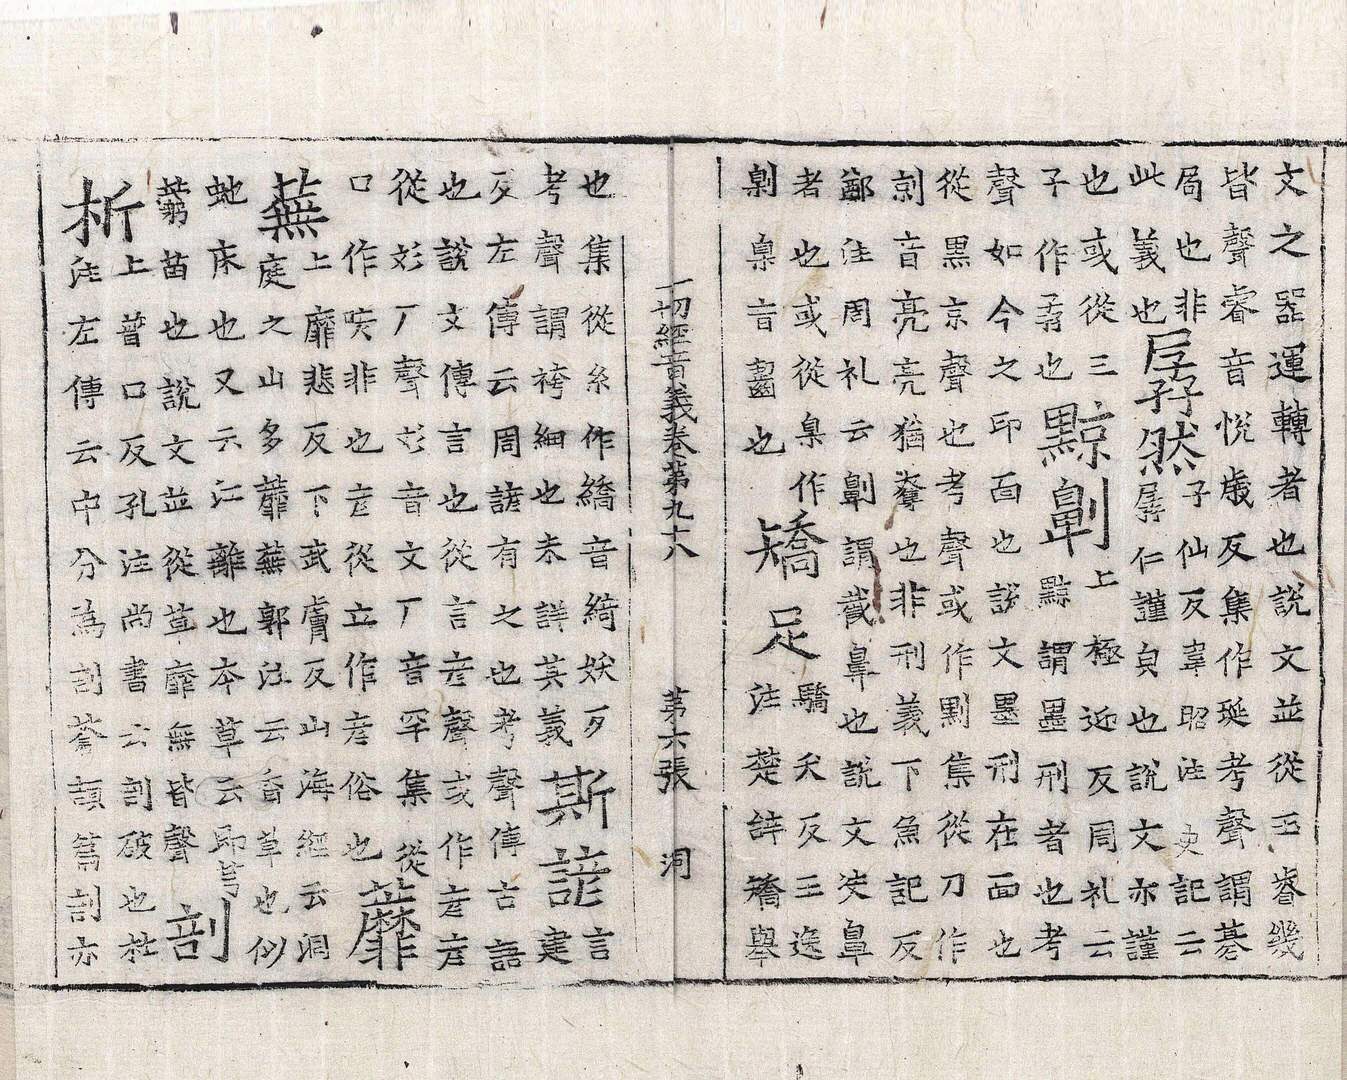 文之器運轉者也說文並從玉睿幾
皆聲睿音悅歲反集作琁考聲謂碁
局也非
孱然
子仙反韋昭注史記云
此義也
孱仁謹皃也說文亦謹
也或從三
黥劓
上極迎反周礼云
子作孨也
黥謂墨刑者也考
聲如今之印面也說文墨刑在面也
從黑京聲也考聲或作剠集從刀作
剠音亮亮猶奪也非刑義下魚記反
鄭注周礼云劓謂截鼻也說文決鼻
者也或從臬作
矯足
驕夭反王逸
劓臬言齧也
注楚辞矯舉
一切經音義卷第九十八 第六張 洞
也集從糸作繑音綺妖反
斯諺
言
考聲謂袴細也未詳其義
建
反左傳云周諺有之也考聲傳古語
也說文傳言也從言彦聲或作彦彦
從彣厂聲彣音文厂音罕集從
蘼
口作喭非也彦從立作彦俗也
蕪
上靡悲反下武膚反山海經云洞
庭之山多蘼蕪郭注云香草也似
虵床也又云江蘺也本草云即芎
藭苗也說文並從草靡無皆聲
剖
析
上普口反孔注尚書云剖破也杜
注左傳云中分為剖蒼頡篇剖亦